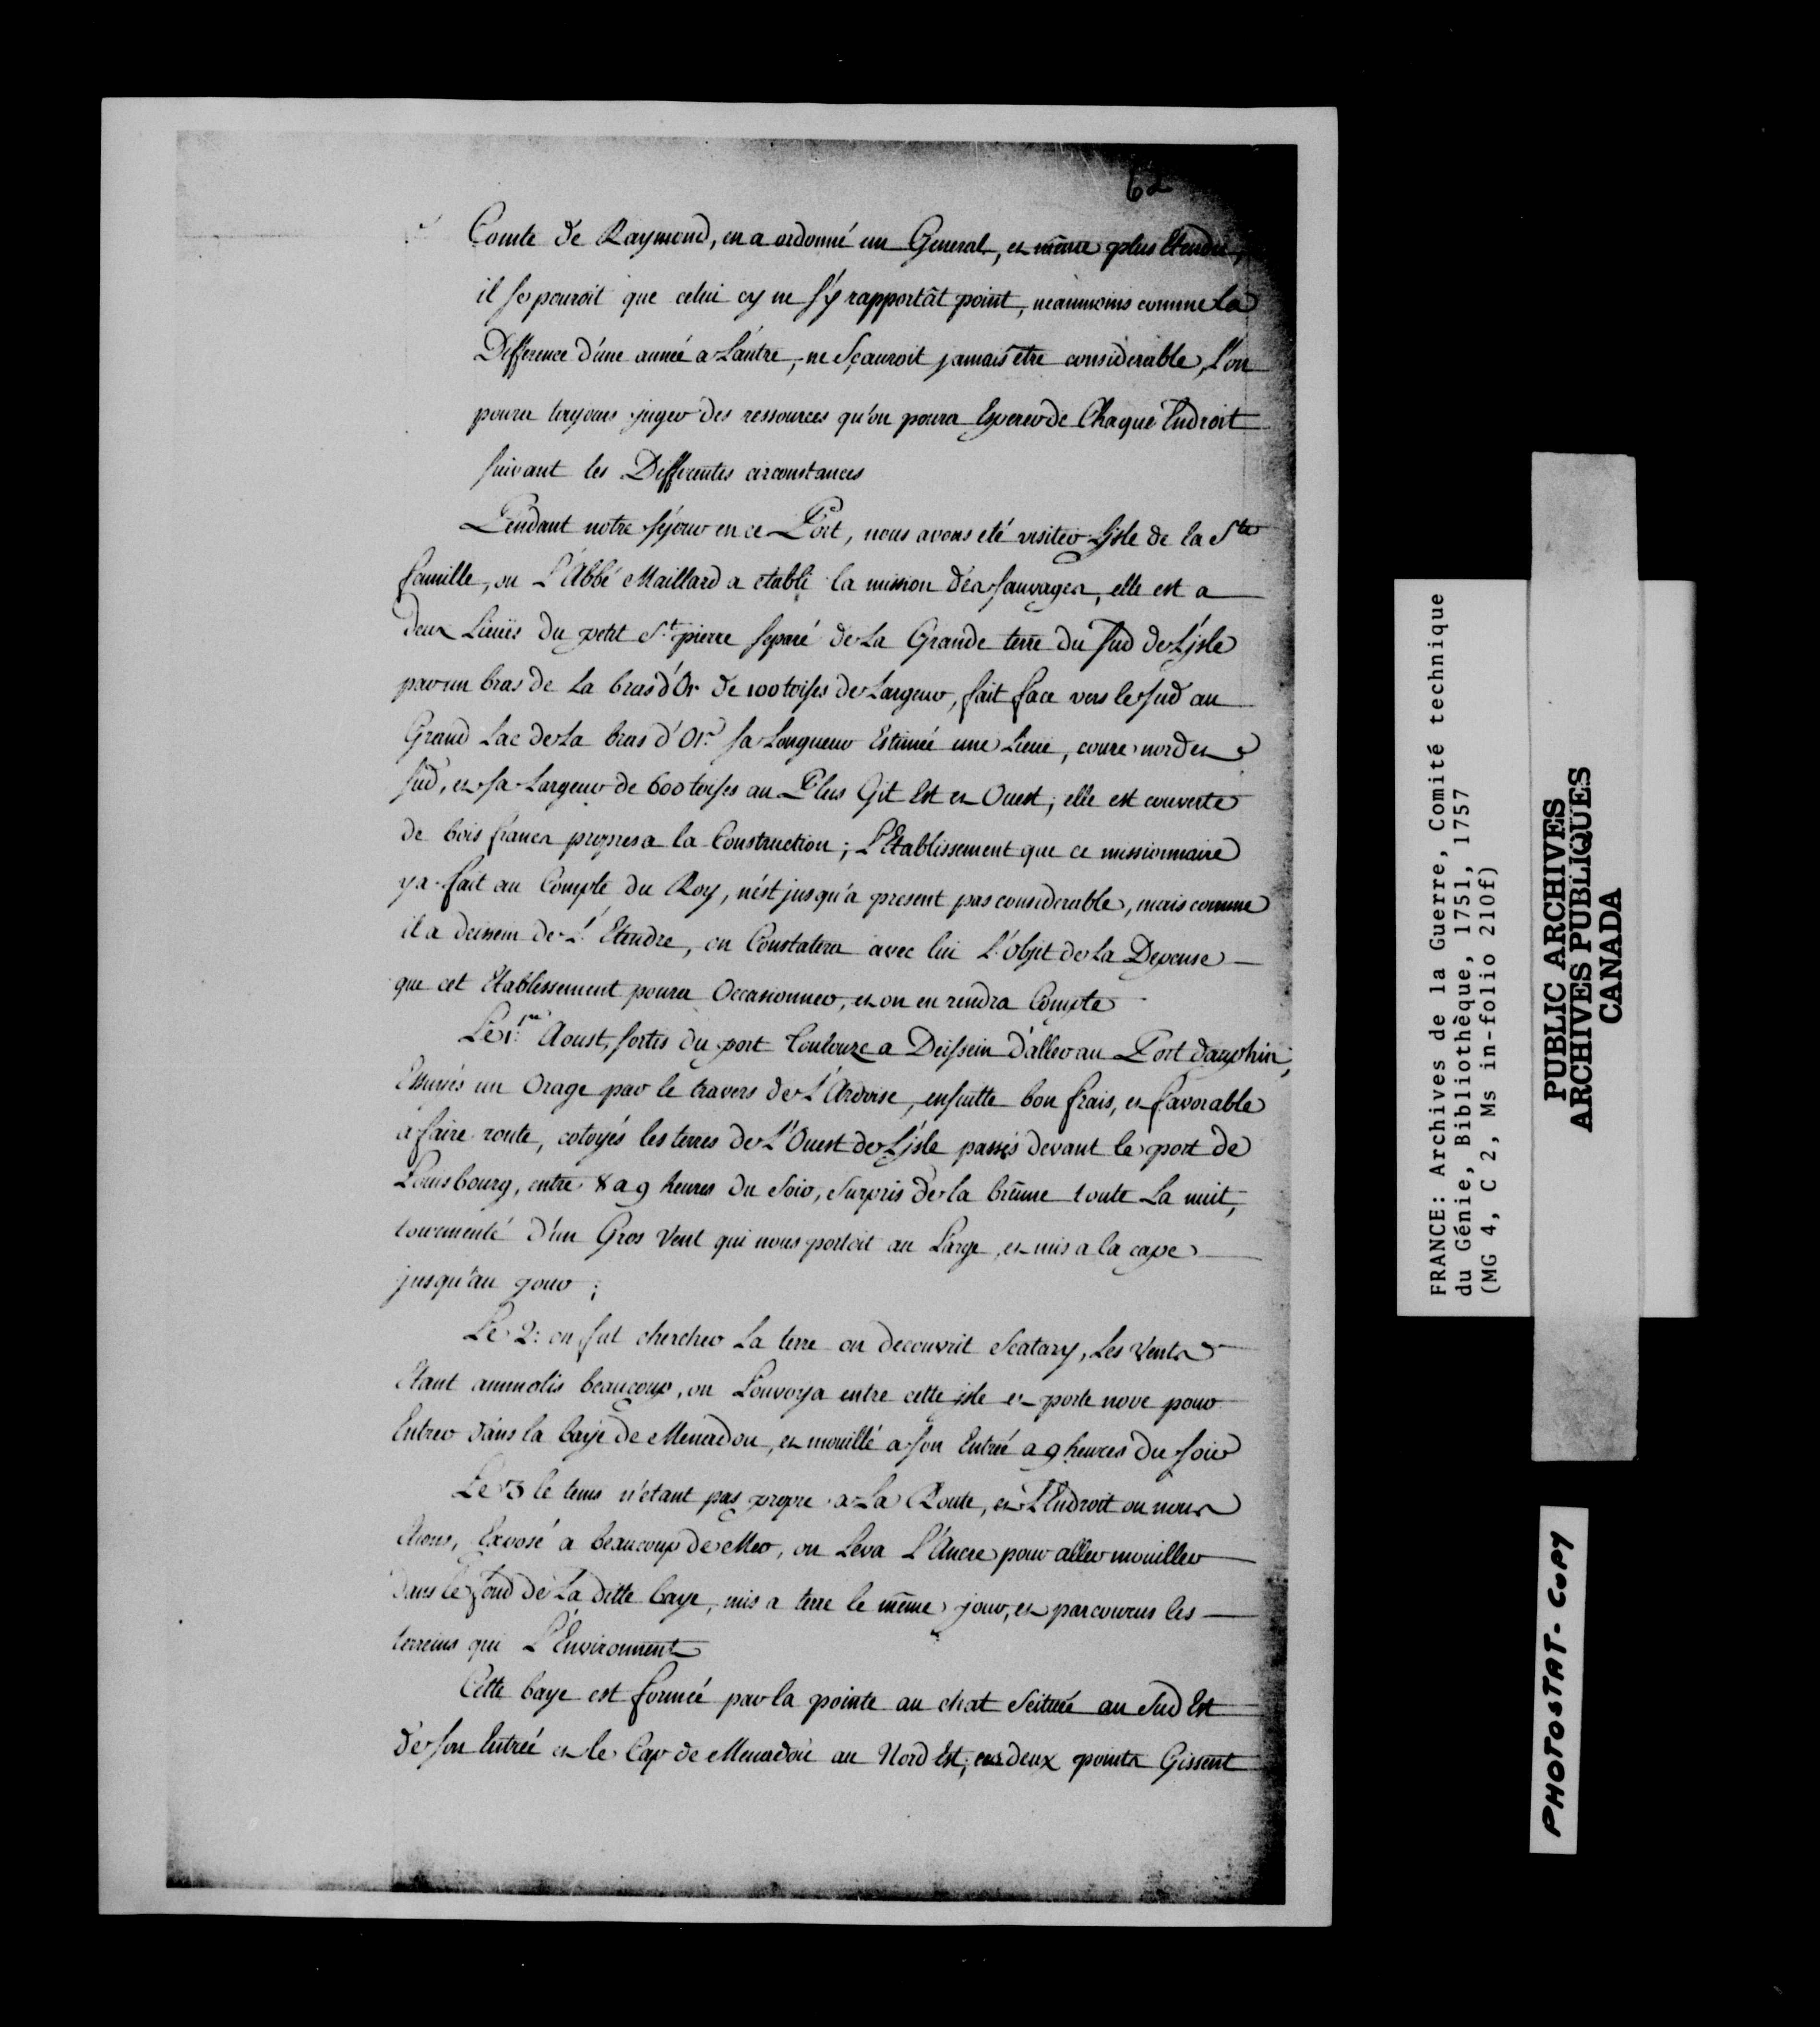 62
Comte de Raymond, en a ordonné un General, et même plus Etendu,
il se pouroit que celui cy ne s'y rapportât point, neanmoins comme La
Difference d'une année a L'autre, ne Sçauroit jamais être considerable, l'on
poura toujours juger des ressources qu'on poura Esperer de Chaque Endroit
suivant les Differentes circonstances
Pendant notre séjour en ce Port, nous avons eté visiter L'jsle de la Ste
famille, ou L'Abbé Maillard a etabli la mission des sauvages, elle est a
deux Lieuës du petit St. pierre separé de La Grande terre du sud de L'jsle
par un bras de La bras d'Or de 100 toises de Largeur, fait face vers le sud au
Grand Lac de La bras d'Or. sa Longueur Estimée une Lieue, coure nord et
sud, et sa Largeur de 600 toises au Plus Git Est et Ouest; elle est couverte
de bois francs propres a la Construction; L'Etablissement que ce missionnaire
y a fait au Compte du Roy, n'est jusqu'a present pas considerable, mais comme
il a deissein de L'Etendre, on Constatera avec lui L'objet de La Depense
que cet Etablissement poura Occasionner, et on en rendra Compte
Le 1er. Aoust, sortis du port Toulouze a Deissein d'aller au Port dauphin,
Essuiés un Orage par le travers de L'Ardoise, ensuitte bon frais, et favorable
à faire route, cotoyés les terres de L'Ouest de L'jsle passés devant le port de
Louisbourg, entre 8 a 9 heures du Soir, Surpris de la brume toute La nuit,
tourmenté d'un Gros Vent qui nous portoit au Large, et mis a la cape
jusqu'au jour;
Le 2: on fut chercher La terre on decouvrit Scatary, Les Vents
Etant ammolis beaucoup, on Louvoya entre cette jsle et porte nove pour
Entrer dans la baye de Menadou, et mouillé a son Entrée a 9 heures du soir
Le 3 le tems n'etant pas propre a La Route, et L'Endroit ou nous
Etions, Exposé a beaucoup de Mer, on Leva L'Ancre pour aller mouiller
dans le fond de La ditte baye, mis a terre le même jour, et parcourus les
terreins qui L'Environnent
Cette baye est formée par la pointe au chat Scituée au Sud Est
de son Entrée et le Cap de Menadou au Nord Est, ces deux pointes Gissent
FRANCE: Archives de la Guerre, Comité technique
du Génie, Bibliothèque, 1751, 1757
(MG 4, C 2, Ms in-folio 210f)
PUBLIC ARCHIVES
ARCHIVES PUBLIQUES
CANADA
PHOTOSTAT-COPY